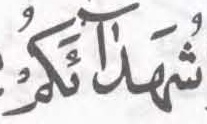 شُهَدَآئَكُمْ